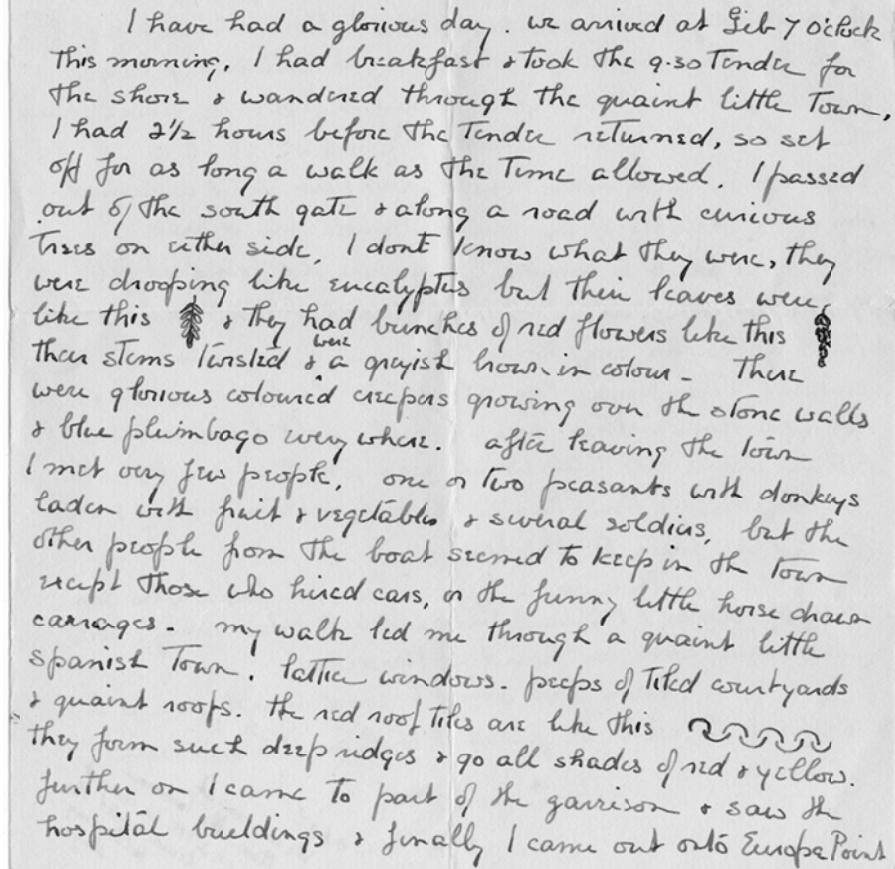 I have had a glorious day. we arrived at Gib 7 o'clock
this morning, I had breakfast & took the 9.30 Tender for
the shore & wandered through the quaint little Town,
I had 2½ hours before the Tender returned, so set
off for as long a walk as the Time allowed. I passed
out of the south gate & along a road with curious
Trees on either side, I dont know what they were, they
were drooping like eucalyptus but their leaves were
like this & they had bunches of red flowers like this
their stems twisted & were a greyish brown in colour - There
were glorious coloured creepers growing over the stone walls
& blue plumbago every where. after leaving the Town
I met very few people, one or two peasants with donkeys
laden with fruit & vegetables & several soldiers, but the
other people from the boat seemed to keep in the Town
except those who hired cars, or the funny little horse drawn
carriages - my walk led me through a quaint little
Spanish Town. lattice windows - peeps of Tiled courtyards
& quaint roofs. the red roof Tiles are like this
they form such deep ridges & go all shades of red & yellow.
further on I came to part of the garrison & saw the
hospital buildings & finally I came out onto Europa Point